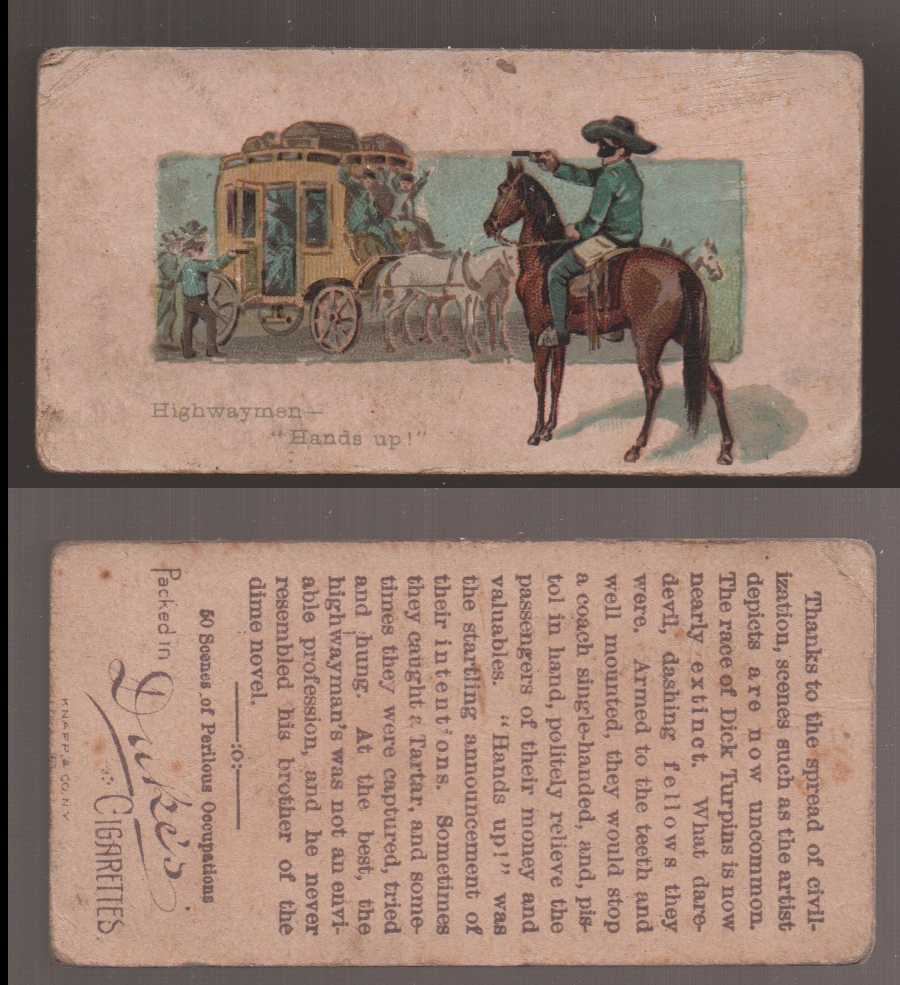 Highwaymen—
"Hands up!"
Thanks to the spread of civil-
ization, scenes such as the artist
depicts are now uncommon.
The race of Dick Turpins is now
nearly extinct. What dare-
devil, dashing fellows they
were. Armed to the teeth and
well mounted, they would stop
a coach single-handed, and, pis-
tol in hand, politely relieve the
passengers of their money and
valuables. "Hands up!" was
the startling announcement of
their intentions. Sometimes
they caught a Tartar, and some-
times they were captured, tried
and hung. At the best, the
highwayman's was not an envi-
able profession, and he never
resembled his brother of the
dime novel.
—:o:—
50 Scenes of Perilous Occupations
Packed in Duke's
CIGARETTES.
KNAPP & CO. N Y